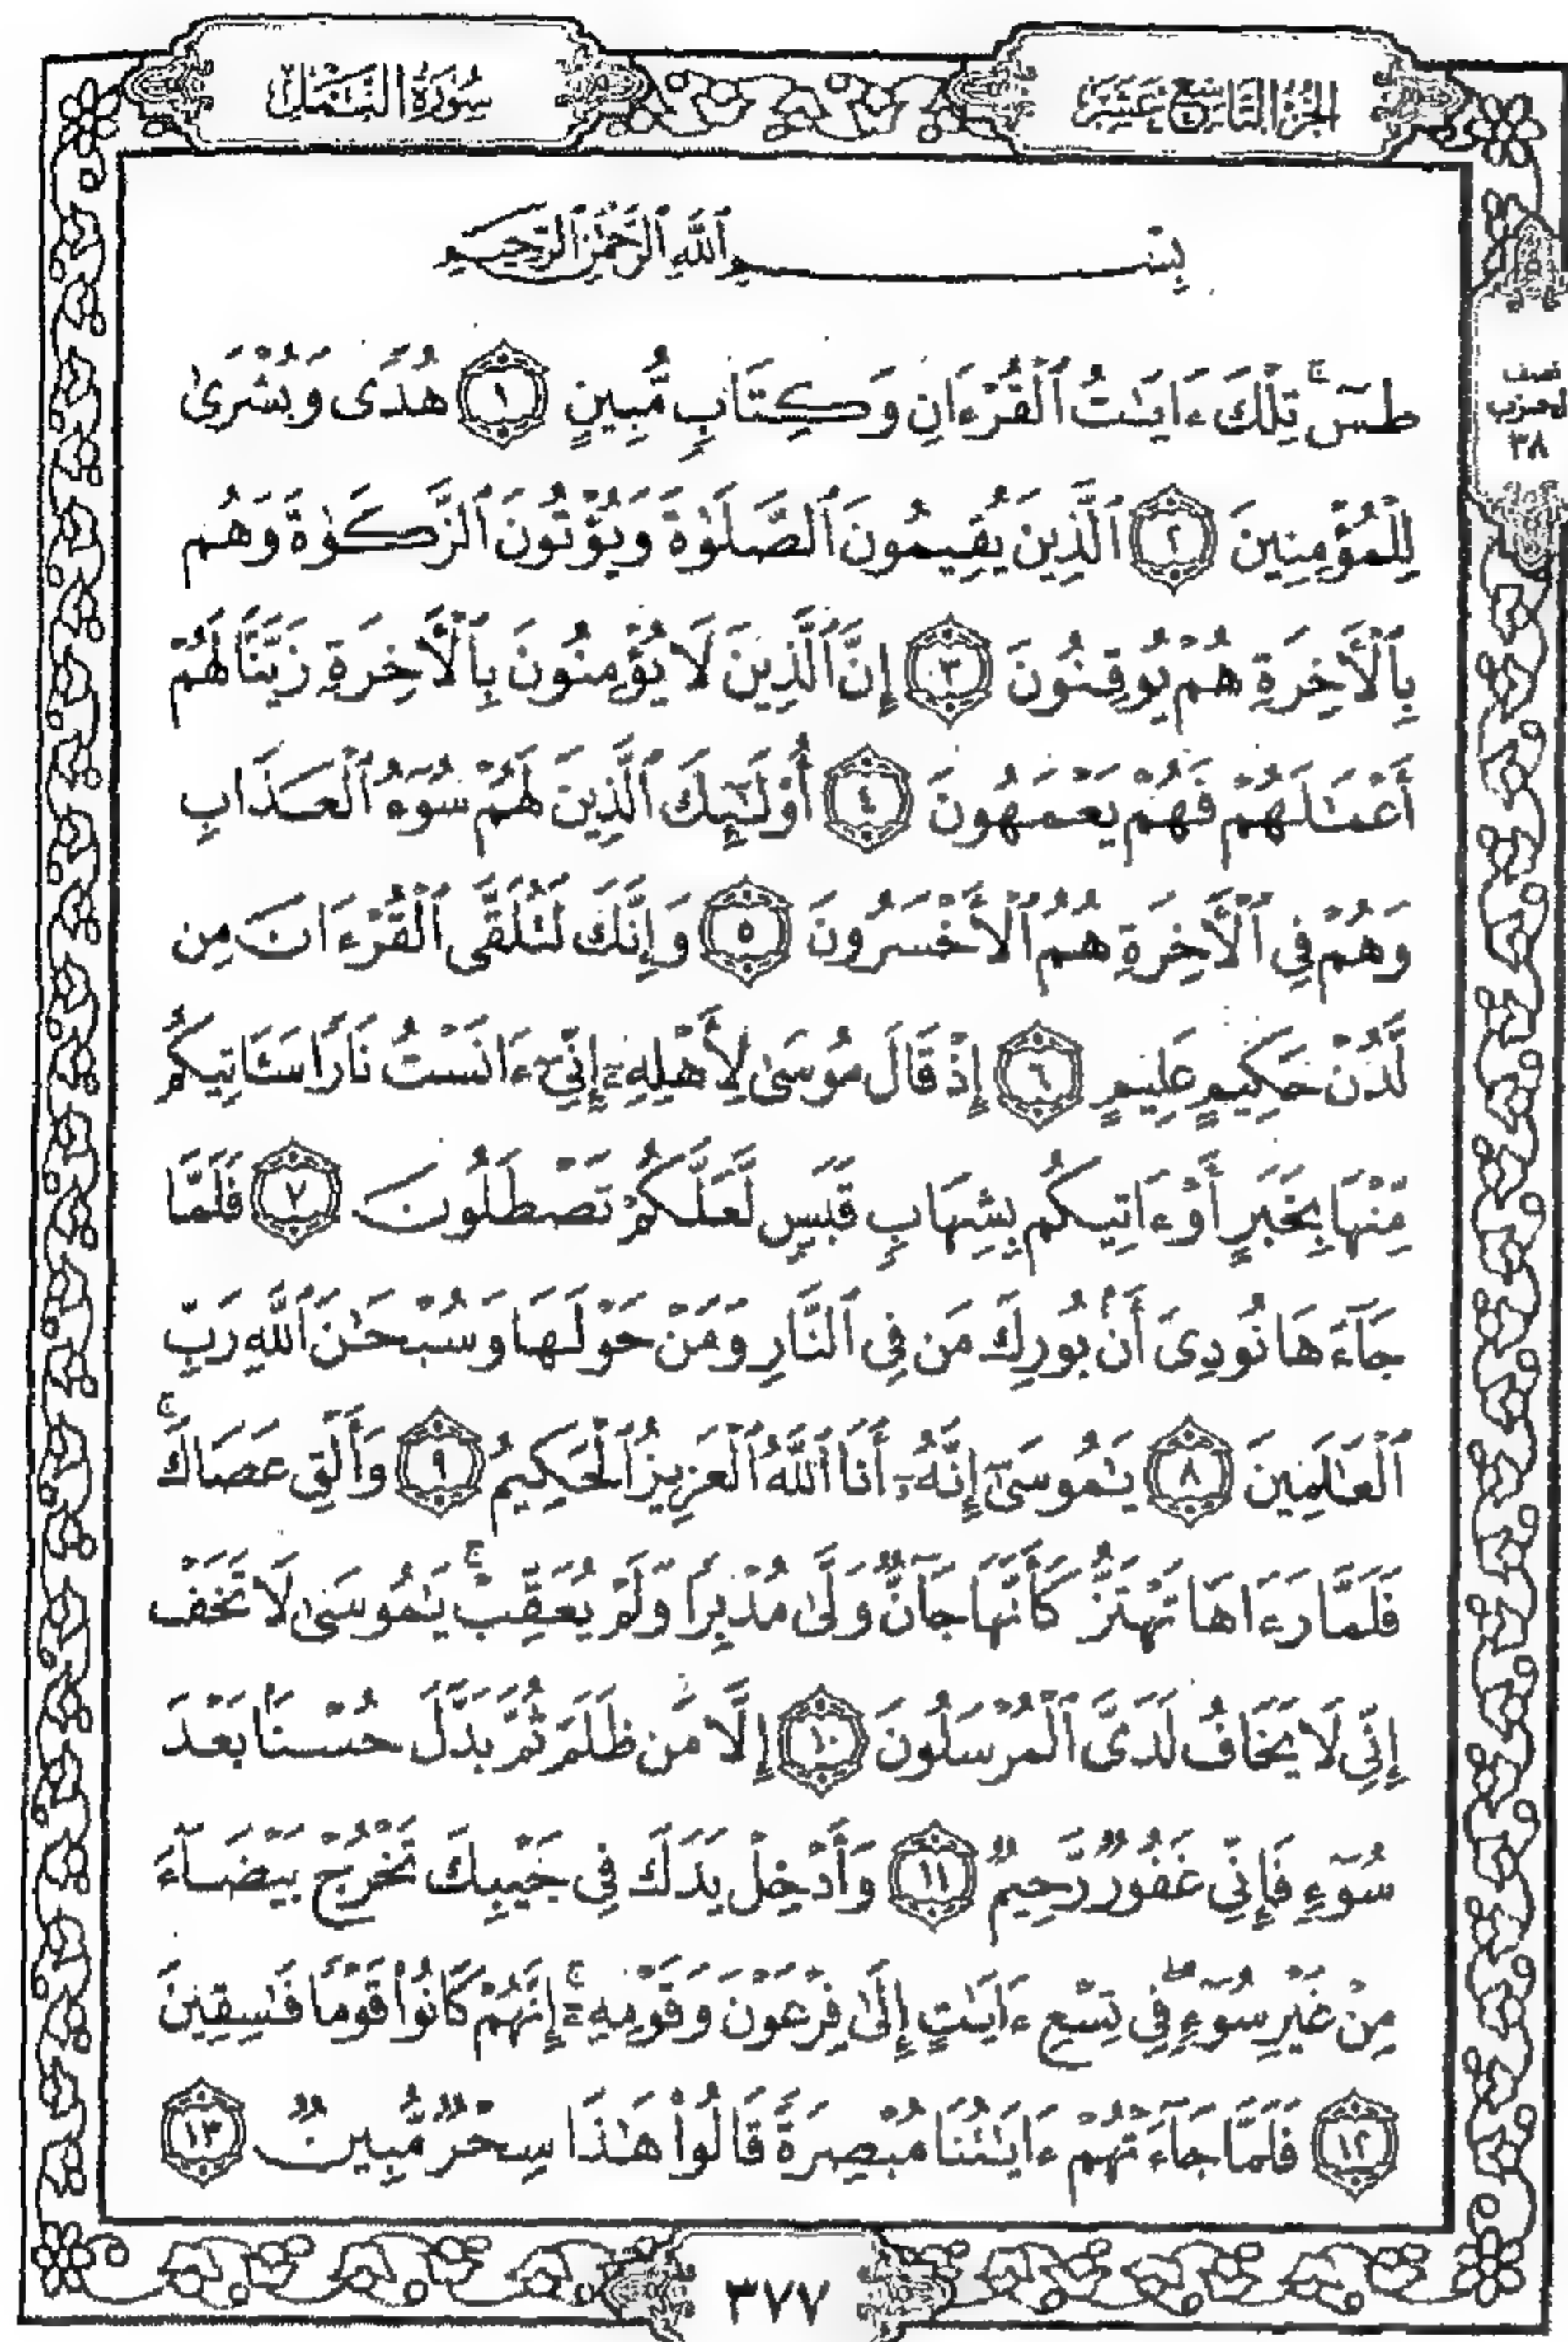 الجزء التاسع عشر
سورة النمل
بِسْمِ ٱللَّهِ ٱلرَّحْمَٰنِ ٱلرَّحِيمِ
طسٓۚ تِلْكَ ءَايَٰتُ ٱلْقُرْءَانِ وَكِتَابٍ مُّبِينٍ ١ هُدًى وَبُشْرَىٰ
لِلْمُؤْمِنِينَ ٢ ٱلَّذِينَ يُقِيمُونَ ٱلصَّلَوٰةَ وَيُؤْتُونَ ٱلزَّكَوٰةَ وَهُم
بِٱلْأَخِرَةِ هُمْ يُوقِنُونَ ٣ إِنَّ ٱلَّذِينَ لَا يُؤْمِنُونَ بِٱلْأَخِرَةِ زَيَّنَّا لَهُمْ
أَعْمَٰلَهُمْ فَهُمْ يَعْمَهُونَ ٤ أُوْلَٰٓئِكَ ٱلَّذِينَ لَهُمْ سُوٓءُ ٱلْعَذَابِ
وَهُمْ فِى ٱلْأَخِرَةِ هُمُ ٱلْأَخْسَرُونَ ٥ وَإِنَّكَ لَتُلَقَّى ٱلْقُرْءَانَ مِن
لَّدُنْ حَكِيمٍ عَلِيمٍ ٦ إِذْ قَالَ مُوسَىٰ لِأَهْلِهِۦٓ إِنِّىٓ ءَانَسْتُ نَارًا سَـَٔاتِيكُم
مِّنْهَا بِخَبَرٍ أَوْ ءَاتِيكُم بِشِهَابٍ قَبَسٍ لَّعَلَّكُمْ تَصْطَلُونَ ٧ فَلَمَّا
جَآءَهَا نُودِىَ أَنۢ بُورِكَ مَن فِى ٱلنَّارِ وَمَنْ حَوْلَهَا وَسُبْحَٰنَ ٱللَّهِ رَبِّ
ٱلْعَٰلَمِينَ ٨ يَٰمُوسَىٰٓ إِنَّهُۥٓ أَنَا ٱللَّهُ ٱلْعَزِيزُ ٱلْحَكِيمُ ٩ وَأَلْقِ عَصَاكَۚ
فَلَمَّا رَءَاهَا تَهْتَزُّ كَأَنَّهَا جَآنٌّ وَلَّىٰ مُدْبِرًا وَلَمْ يُعَقِّبْۚ يَٰمُوسَىٰ لَا تَخَفْ
إِنِّى لَا يَخَافُ لَدَىَّ ٱلْمُرْسَلُونَ ١٠ إِلَّا مَن ظَلَمَ ثُمَّ بَدَّلَ حُسْنًۢا بَعْدَ
سُوٓءٍ فَإِنِّى غَفُورٌ رَّحِيمٌ ١١ وَأَدْخِلْ يَدَكَ فِى جَيْبِكَ تَخْرُجْ بَيْضَآءَ
مِنْ غَيْرِ سُوٓءٍۖ فِى تِسْعِ ءَايَٰتٍ إِلَىٰ فِرْعَوْنَ وَقَوْمِهِۦٓۚ إِنَّهُمْ كَانُوا۟ قَوْمًا فَٰسِقِينَ
١٢ فَلَمَّا جَآءَتْهُمْ ءَايَٰتُنَا مُبْصِرَةً قَالُوا۟ هَٰذَا سِحْرٌ مُّبِينٌ ١٣
نصف
الحزب
٣٨
٣٧٧